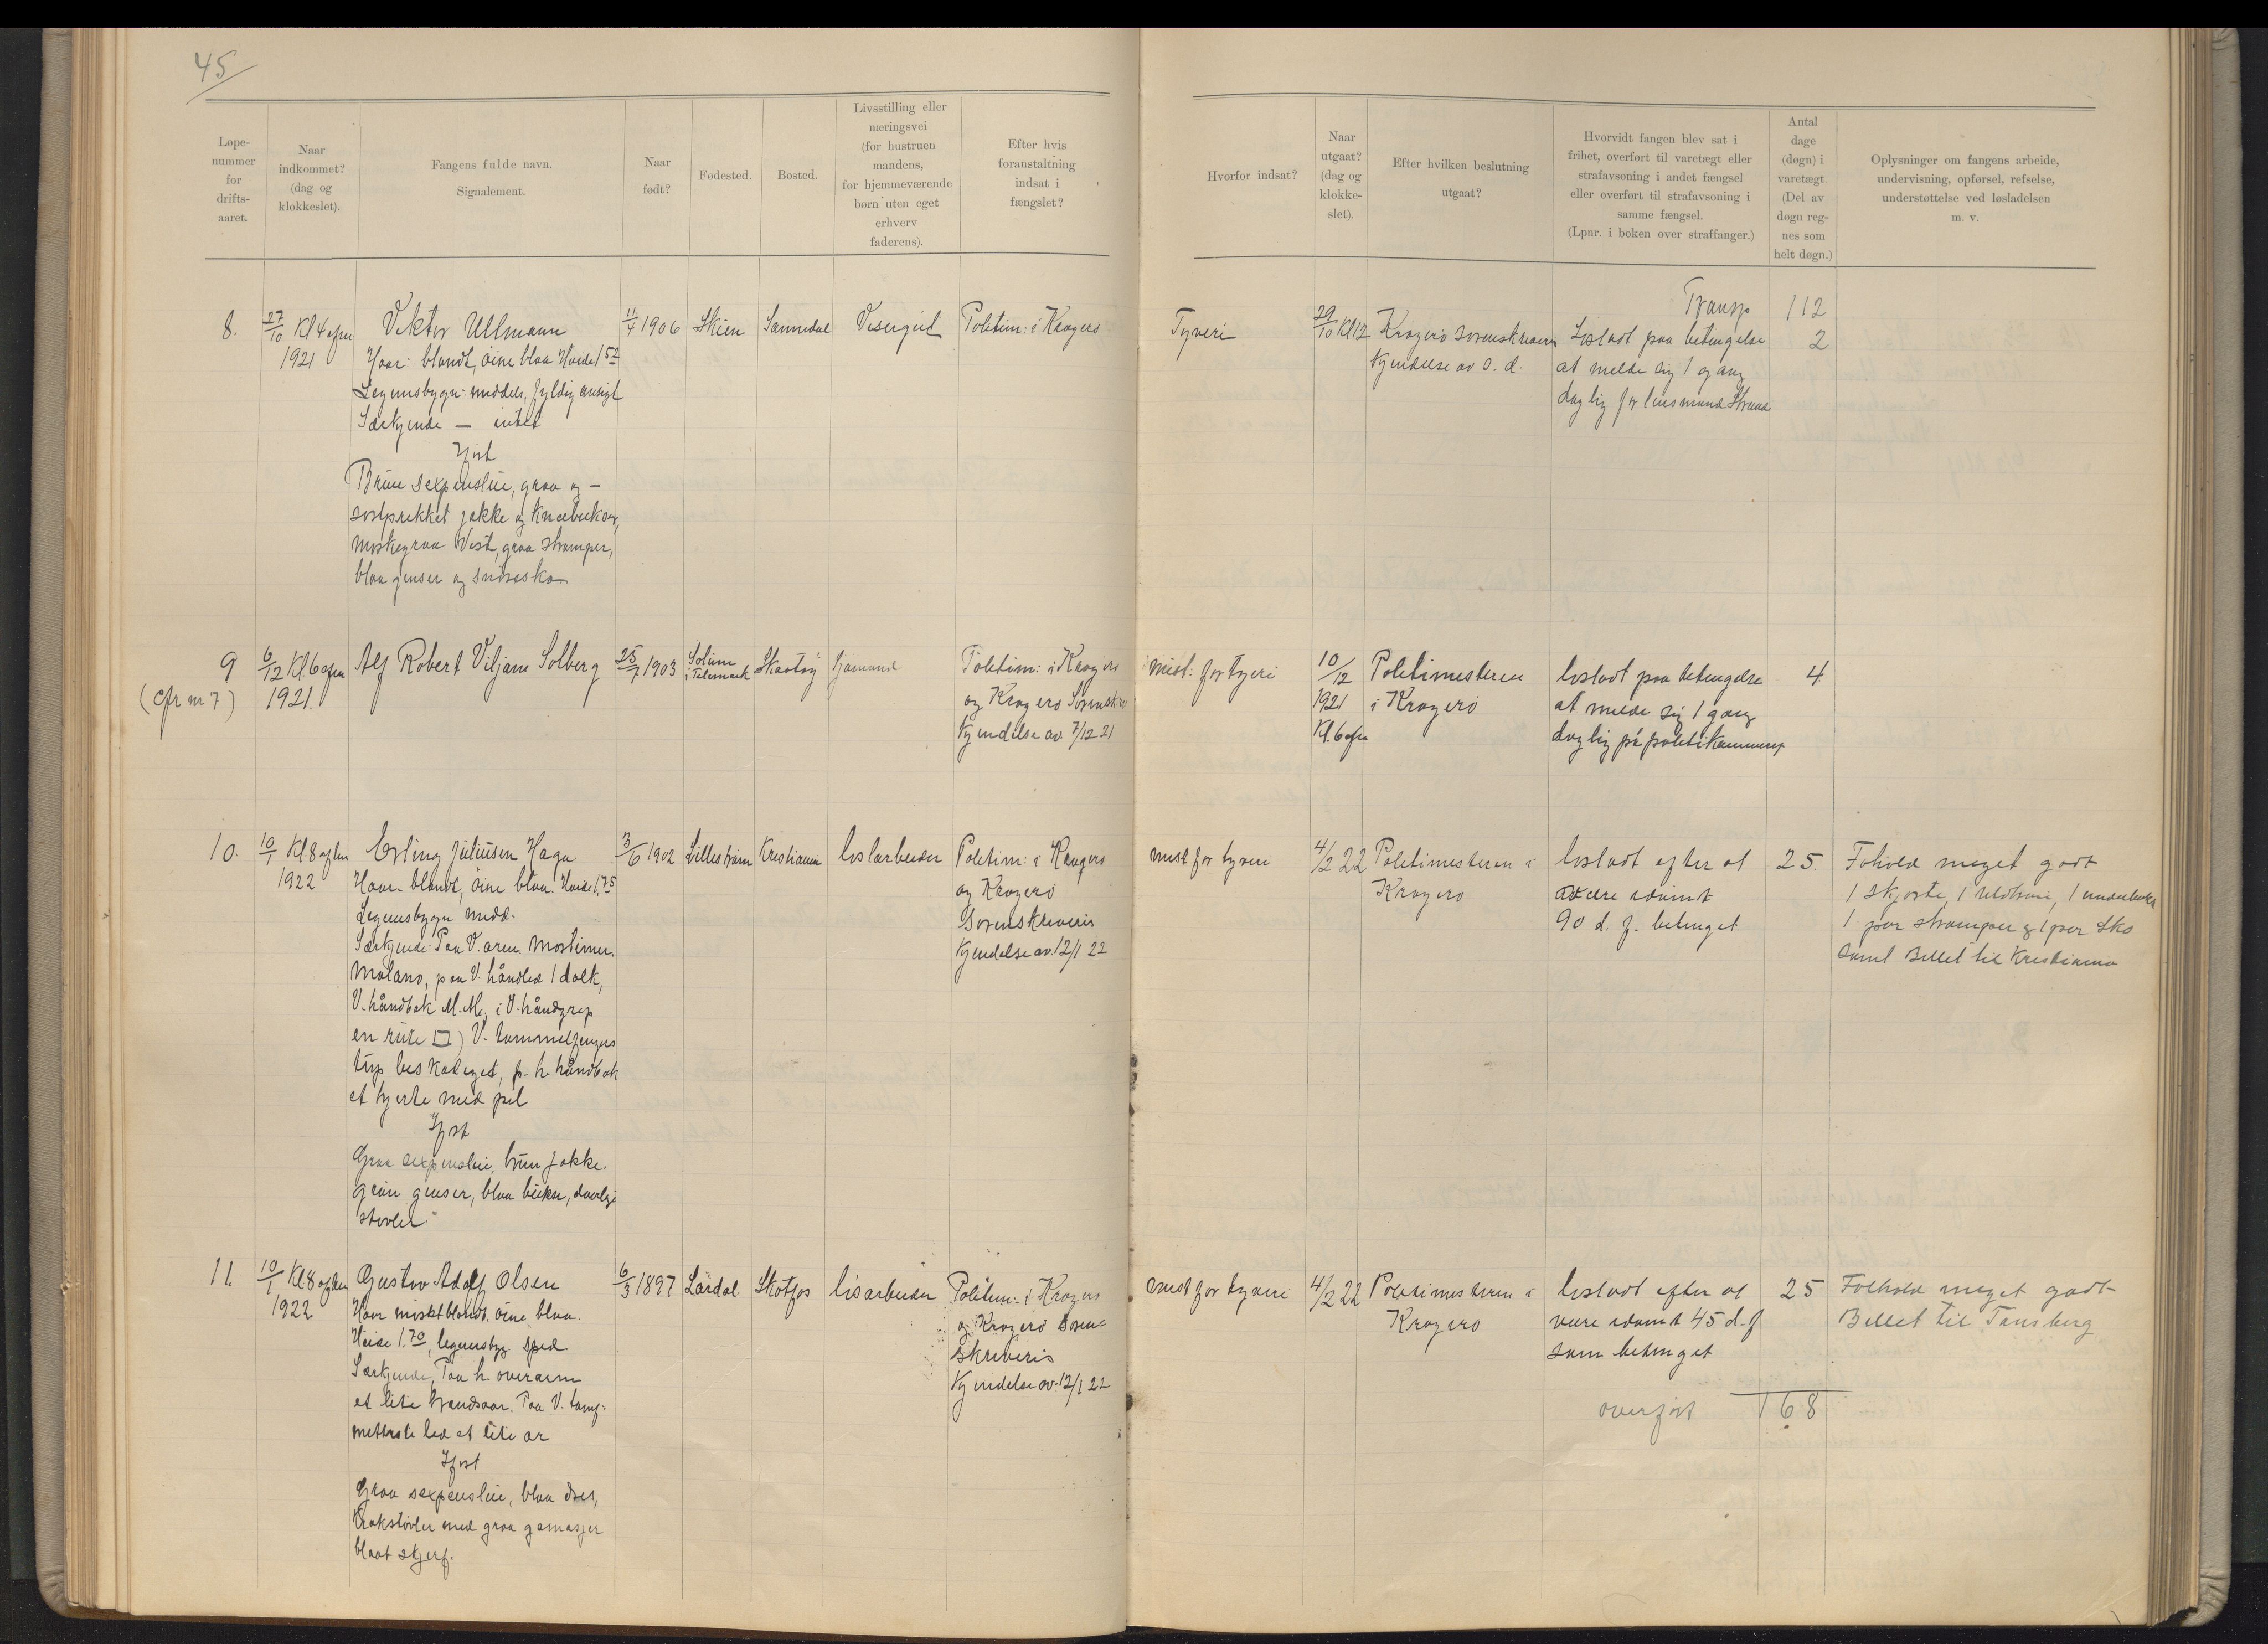 45
Løpe-
nummer
for
drifts-
aaret.
Naar
indkommet?
(dag og
klokkeslet).
Fangens fulde navn.
Signalement.
Naar
født?
Fødested.
Bosted.
Livsstilling eller
næringsvei
(for hustruen
mandens,
for hjemmeværende
børn uten eget
erhverv
faderens).
Efter hvis
foranstaltning
indsat i
fængslet?
Hvorfor indsat?
Naar
utgaat?
(dag og
klokke-
slet).
Efter hvilken beslutning
utgaat?
Hvorvidt fangen blev sat i
frihet, overført til varetægt eller
strafavsoning i andet fængsel
eller overført til strafavsoning i
samme fængsel.
(Lpnr. i boken over straffanger.)
Antal
dage
(døgn) i
varetægt.
(Del av
døgn reg-
nes som
helt døgn.)
Oplysninger om fangens arbeide,
undervisning, opførsel, refselse,
understøttelse ved løsladelsen
m. v.
Transp 112
8.
27/10 Kl 4 efm
1921
Viktor Ullmann
Haar: blondt, öine blaa Höide 1 52
Legemsbygn middels, fyldig ansigt
Særkjende — intet
Iført
Brun sexpenslue, graa og -
sortprikket jakke og Knæbukser,
mørkegraa Vest, graa strømper,
blaa genser og snöresko
11/4 1906
Skien
Sannidal
Visergut
Politim: i Kragerö
Tyveri
29/10 Kl 12
Kragerö sorenskriveri
Kjendelse av s. d.
Lösladt paa betingelse
at melde sig 1 gang
daglig for lensmand Strand
2
9
(cfr nr 7)
6/12 Kl. 6 efm
1921.
Alf Robert Viljam Solberg
25/7 1903
Solum
i Telemark
Skaatöy
Sjömand
Politim: i Kragerö
og Kragerö Sorenskr
Kjendelse av 7/12 21
mist: for tyveri
10/12
1921
Kl. 6 efm
Politimesteren
i Kragerö
lösladt paa betingelse
at melde sig 1 gang
daglig på politikammeret
4
10.
10/1 Kl. 8 aften
1922
Erling Juliusen Haga
Haar- blondt, öine blaa. Höide 1.75
Legemsbygn midd.
Særkjende: Paa V. arm. Mortimer.
Molano, paa V. håndled 1 dolk,
V. håndbak M.M., i V. håndgrep
en rute □) V. tommelfingers
tup beskadiget, p. h. håndbak
et hjerte med pil
Iført
Graa sexpenslue, brun jakke.
grön genser, blaa bukse, daarlige
stövler
3/6 1902
Lilleström
Kristiania
lösarbeider
Politim: i Kragerö
og Kragerö
Sorenskriveris
Kjendelse av. 12/1 22
mist for tyveri
4/2 22
Politimesteren i
Kragerö
lösladt efter at
være idömt
90 d. f. betinget
25.
Fohold meget godt
1 Skjorte, 1 uldtröie, 1 underbukse
1 par strömper og 1 par Sko
samt Billet til Kristiania
11.
10/1 Kl. 8 aften
1922
Gustav Adolf Olsen
Haar mörkt blondt. öine blaa.
Höide 1.70, legemsbyg spæd
Særkjende, Paa h. overarm
et lite brandsaar. Paa V. langf-
midterste led et lite ar
Iført
Graa sexpenslue, blaa dres,
Kraksövler med graa gamasjer
blaat skjerf.
6/3 1897
Lårdal
Skotfos
lösarbeider
Politim: i Kragerö
og Kragerö Soren-
skriveris
Kjendelse av. 12/1 22
mist for tyveri
4/2 22
Politimesteren i
Kragerö
lösladt efter at
være idömt 45 d. f
som betinget
25
Fohold meget godt
Billet til Tönsberg
overført 168